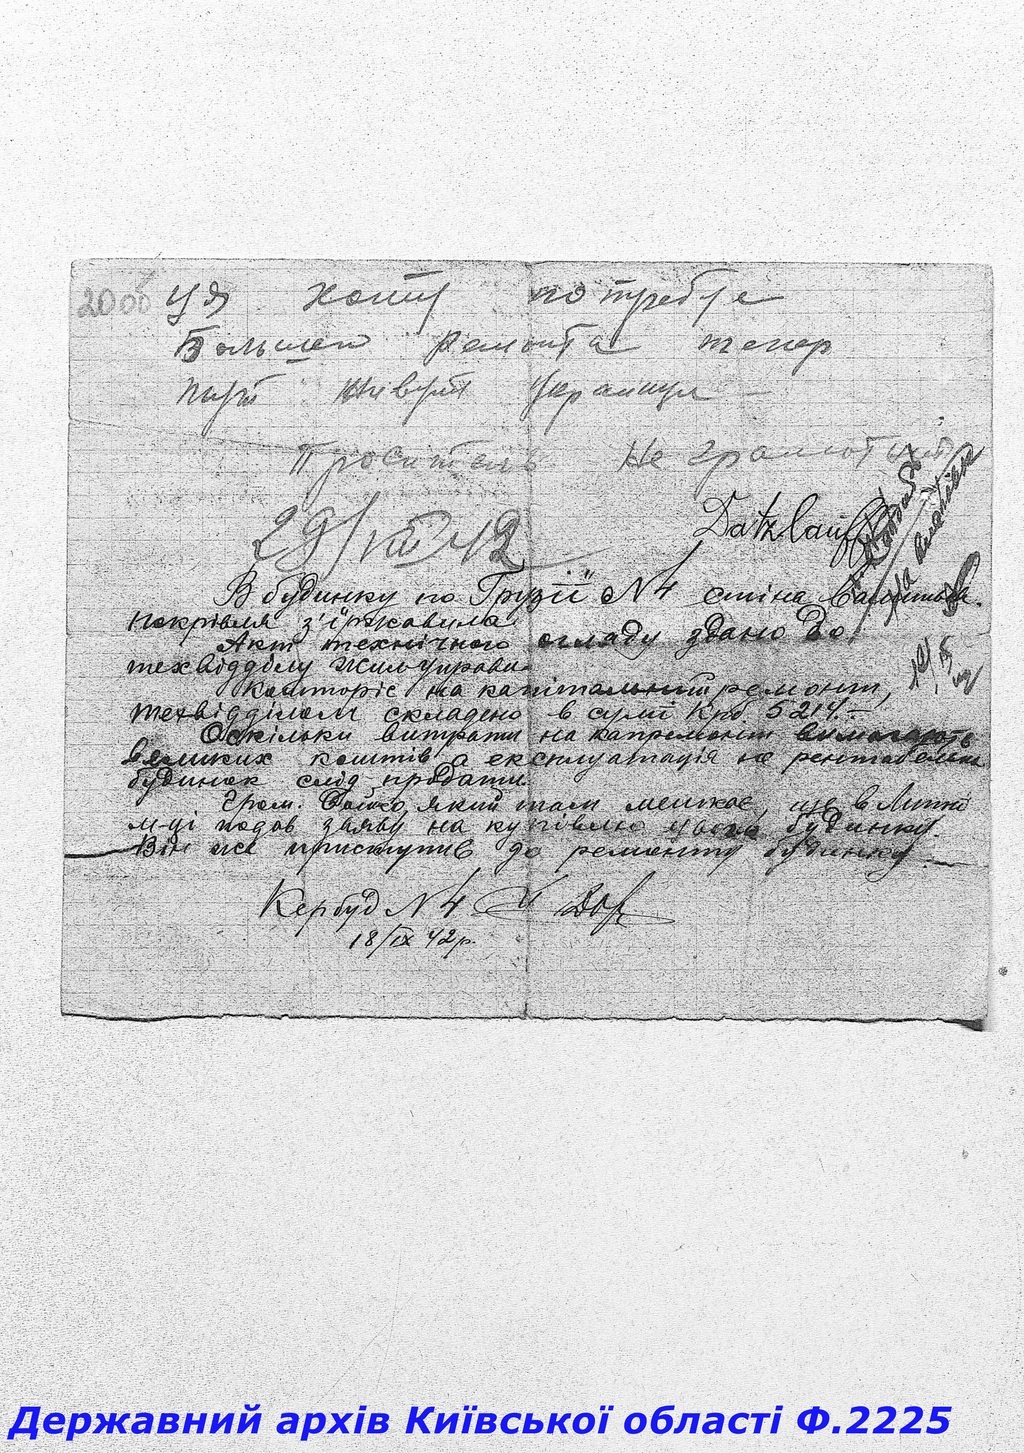 20об
Ця хату потребує
Большего ремонта тепер
тут живут Украинци
Проситель не грамотный
29/VIII 42
В будинку по Грузії N 4 стіна
покрівля з'їржавила.
Акт технічного огляду здано до
техвідділу Жил-управи.
Кошторіс на капітальний ремонт,
техвідділом складено в сумі Крб. 5214.-
Оскільки витрати на капремонт вимагають
великих коштів а експлуатація не рентабельна
будинок слід продати.
Гром. який там мешкає, ще в Липні
м-ці подав заяву на купівлю цього будинку.
Він же приступив до ремонту будинку.
Кербуд N 4
18/IX 42р.
Державний архів Київської області Ф.2225